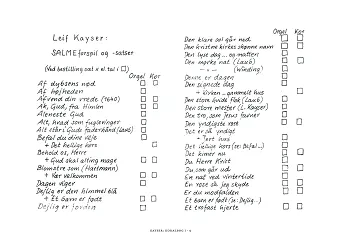 Leif Kayser:
SALMEforspil og -satser
(Ved bestilling sæt x el. tal i □)
Orgel Kor
Af dybsens nød
Af højheden
Afvend din vrede (1640)
Ak, Gud, fra Himlen
Aleneste Gud
Alt, hvad som fuglevinger
Alt står i Guds faderhånd (Laub)
Befal du dine veje
+ Det hellige kors
Behold os, Herre
+ Gud skal alting mage
Blomstre som (Hartmann)
+ Vær velkommen
Dagen viger
Dejlig er den himmel blå
+ Et barn er født
Dejlig er jorden
Orgel Kor
Den klare sol går ned
Den kristne kirkes skønne navn
Den lyse dag ... og natten
Den mørke nat (Laub)
- " - (Winding)
Denne er dagen
Den signede dag
+ Kirken ... gammelt hus
Den store hvide flok (Laub)
Den store mester (L. Knudsen)
Den tro, som Jesus favner
Den yndigste rose
Det er så yndigt
+ Jert hus
Det kimer nu
Du Herre Krist
Du, som går ud
En nat ved vintertide
En rose så jeg skyde
Er du modfalden
Et barn er født (se: Dejlig...)
Et trofast hjerte